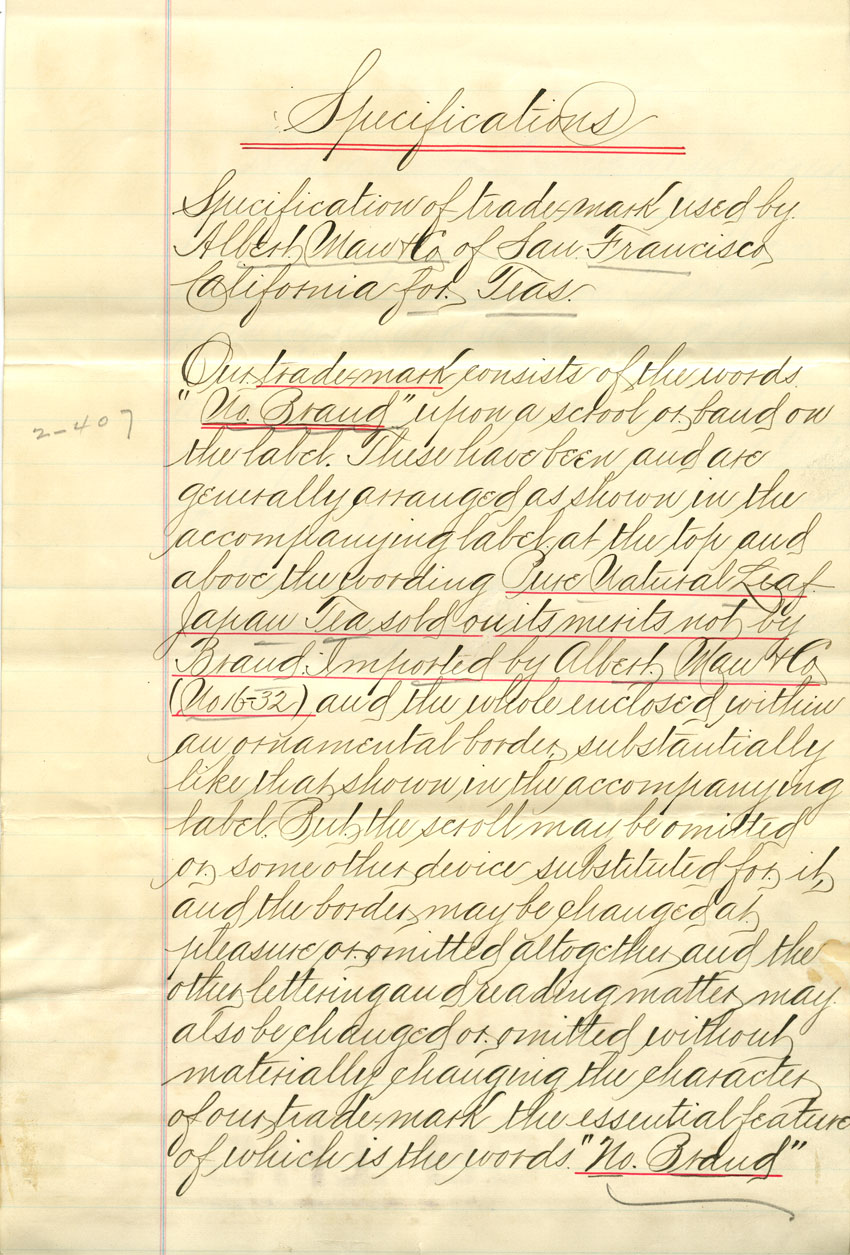 Specifications
Specification of trade-mark used by
Albert Mau & Co of San Francisco
California for Teas.
Our trade-mark consists of the words
"No. Brand" upon a scrool or band on
the label. These have been and are
generally arranged as shown in the
accompanying label, at the top and
above the wording Pure Natural Leaf
Japan Tea sold on its merits not by
Brand. Imported by Albert Mau & Co
(No 16-32) and the whole enclosed within
an ornamental border substantially
like that shown in the accompanying
label. But the scroll may be omitted
or some other device substituted for it,
and the border may be changed at
pleasure or omitted altogether and the
other lettering and reading matter may
also be changed or omitted without
materially changing the character
of our trade-mark the essential feature
of which is the words "No. Brand"
2-407